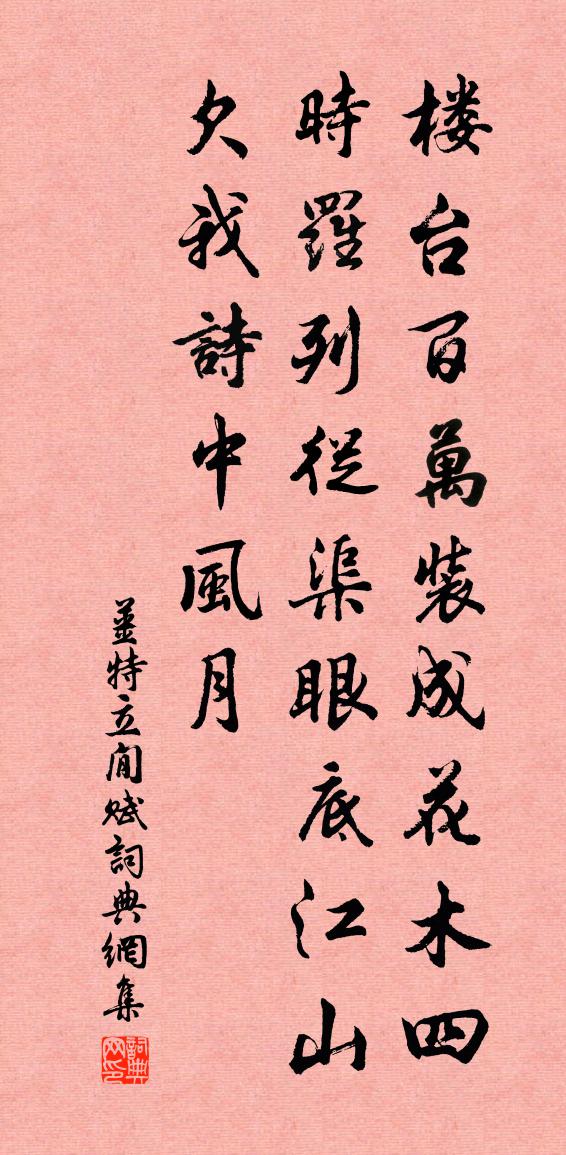 楼台百萬裝成花木四
時羅列從渠眼底江山
欠我詩中風月
姜特立閒賦詞典網集
詞典網印